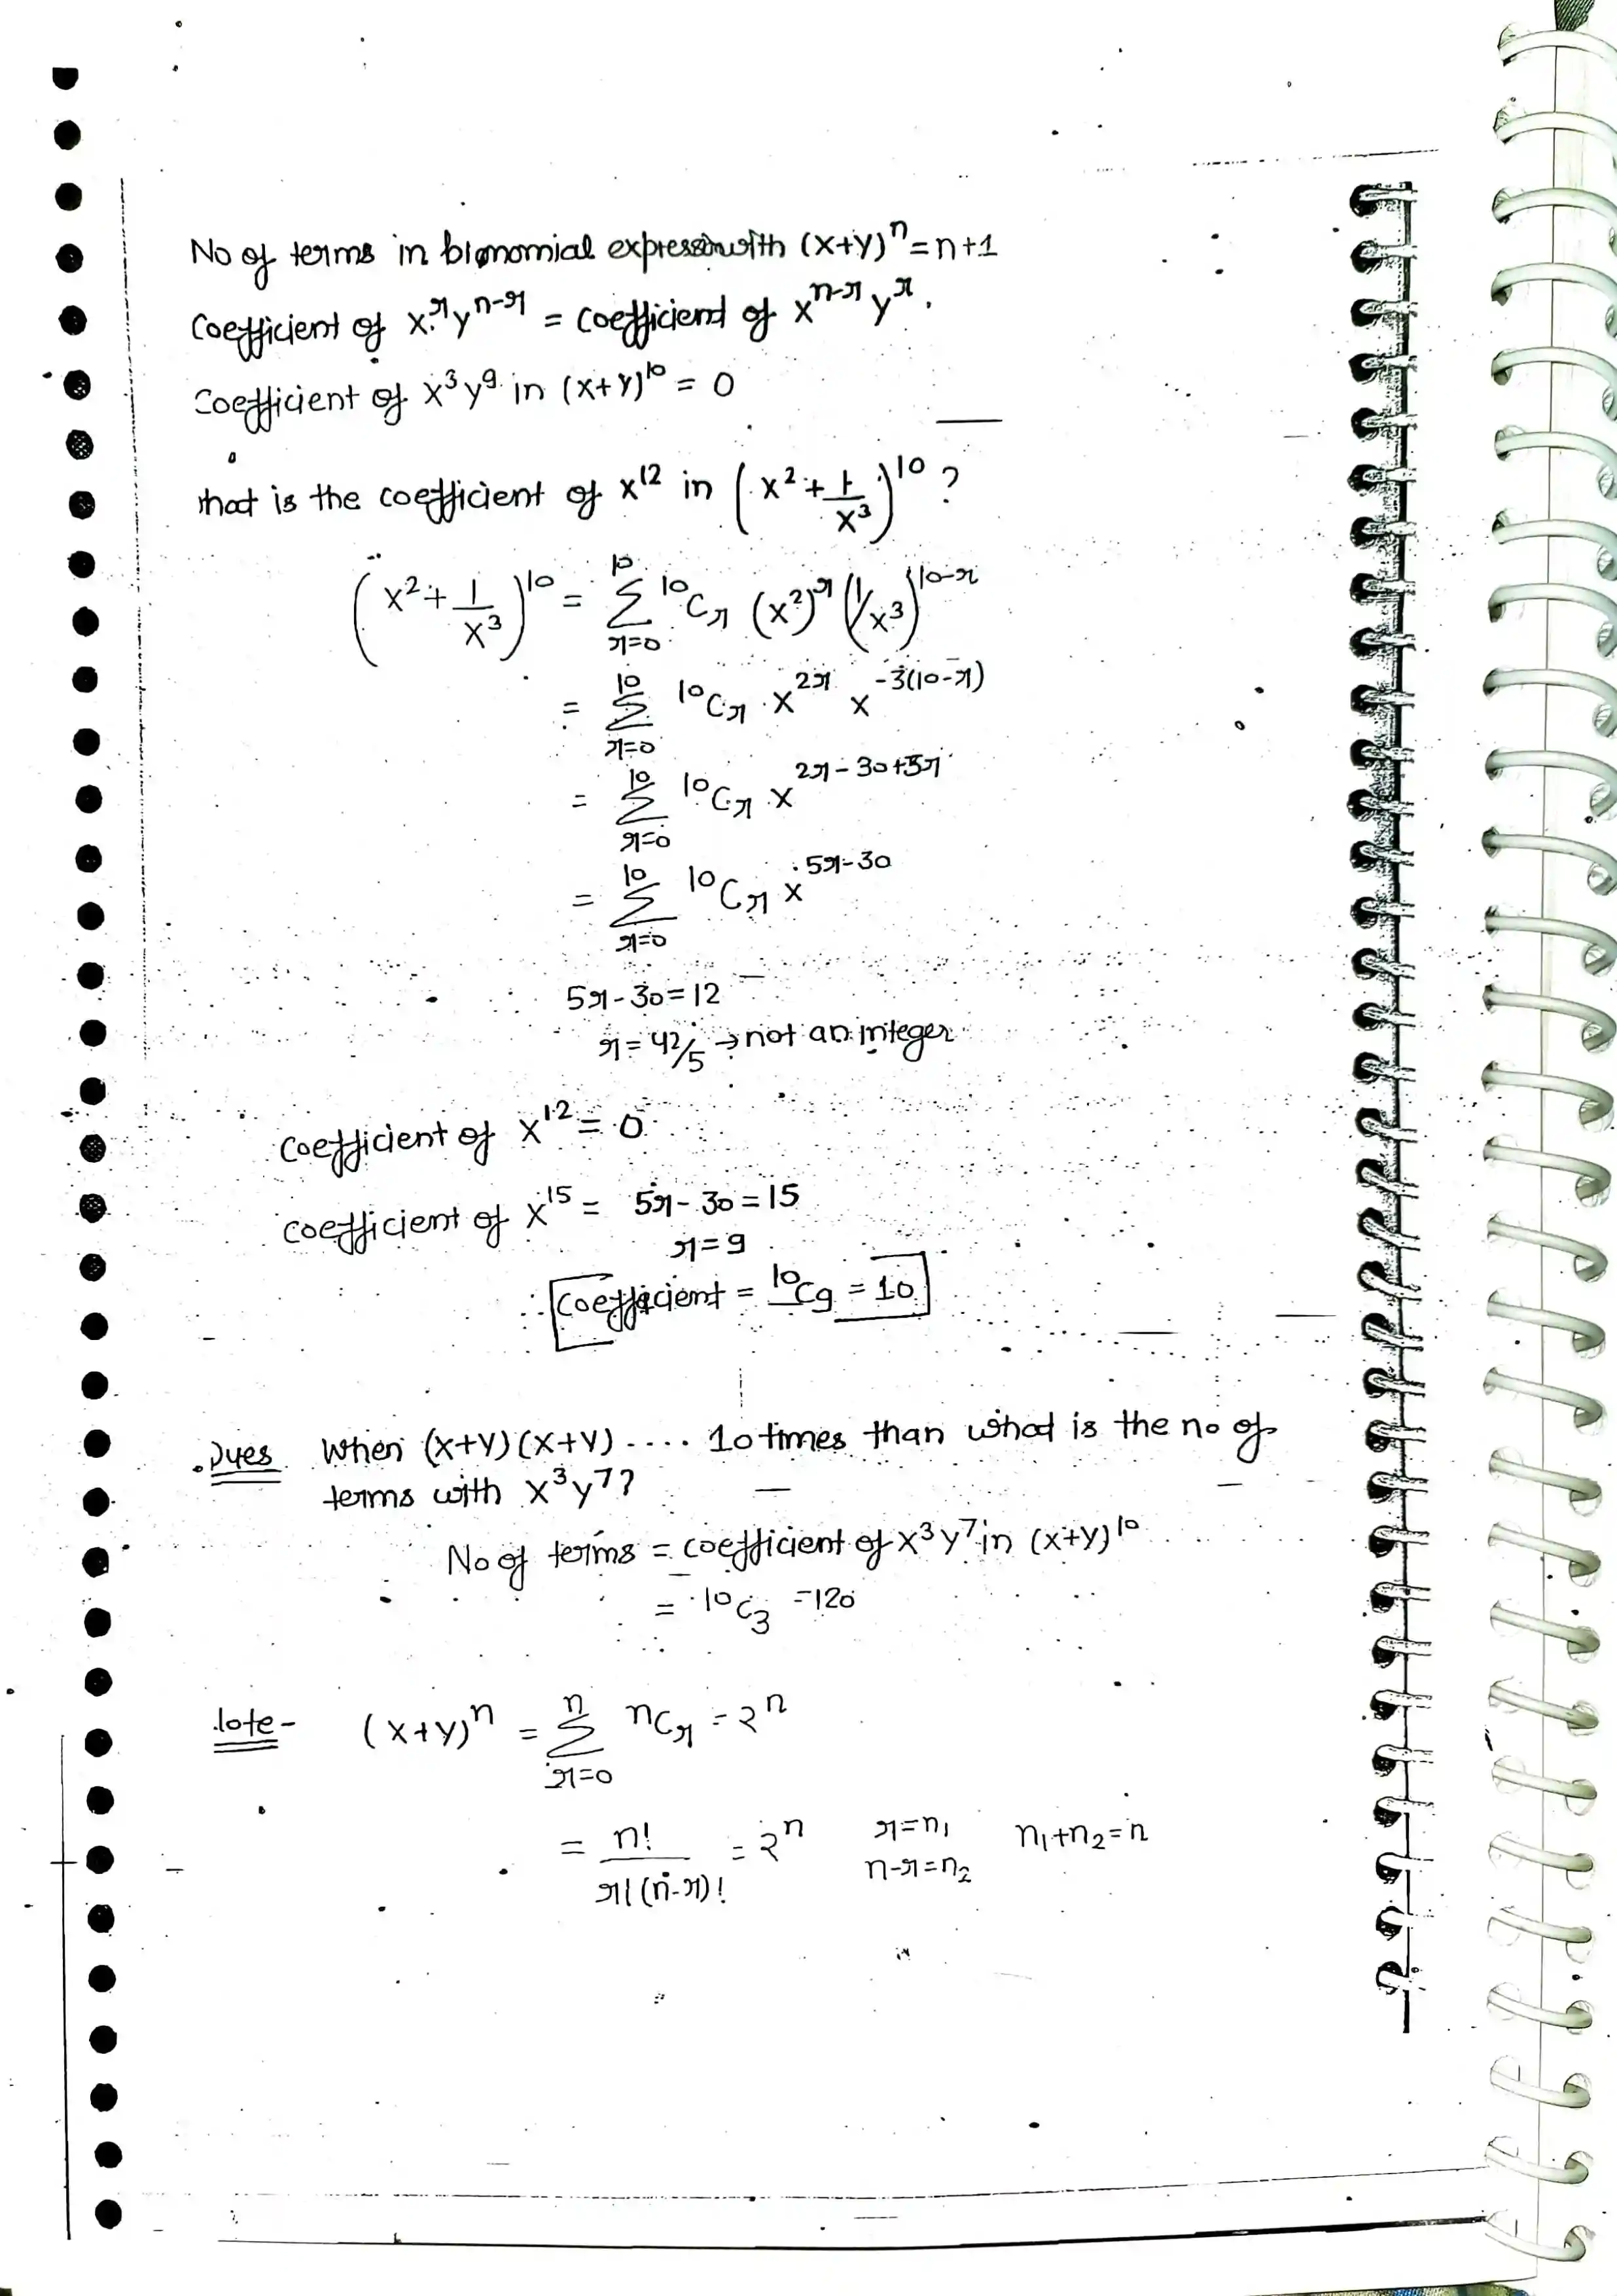 No of terms in bionomial expression with (x+y)^n = n+1
Coefficient of x^r y^(n-r) = coefficient of x^(n-r) y^r.
Coefficient of x^3 y^9 in (x+y)^10 = 0
hat is the coefficient of x^12 in (x^2 + 1/x^3)^10 ?
(x^2 + 1/x^3)^10 = Σ_{r=0}^{10} ^10C_r (x^2)^r (1/x^3)^(10-r)
= Σ_{r=0}^{10} ^10C_r x^(2r) x^(-3(10-r))
= Σ_{r=0}^{10} ^10C_r x^(2r-30+3r)
= Σ_{r=0}^{10} ^10C_r x^(5r-30)
5r-30=12
r = 42/5 → not an integer
coefficient of x^12 = 0
coefficient of x^15 = 5r-30=15
r=9
∴ coefficient = ^10C_9 = 10
Ques When (x+y)(x+y) .... 10 times than what is the no of
terms with x^3 y^7?
No of terms = coefficient of x^3 y^7 in (x+y)^10
= ^10C_3 =120
lote- (x+y)^n = Σ_{r=0}^{n} ^nC_r = 2^n
= n!/(r!(n-r)!) = 2^n r=n_1 n_1+n_2=n
n-r=n_2